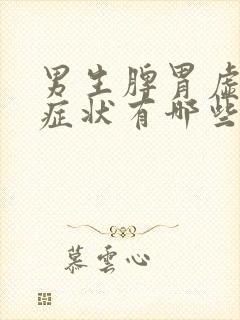 男生脾胃虚
症状有哪些
慕雲心